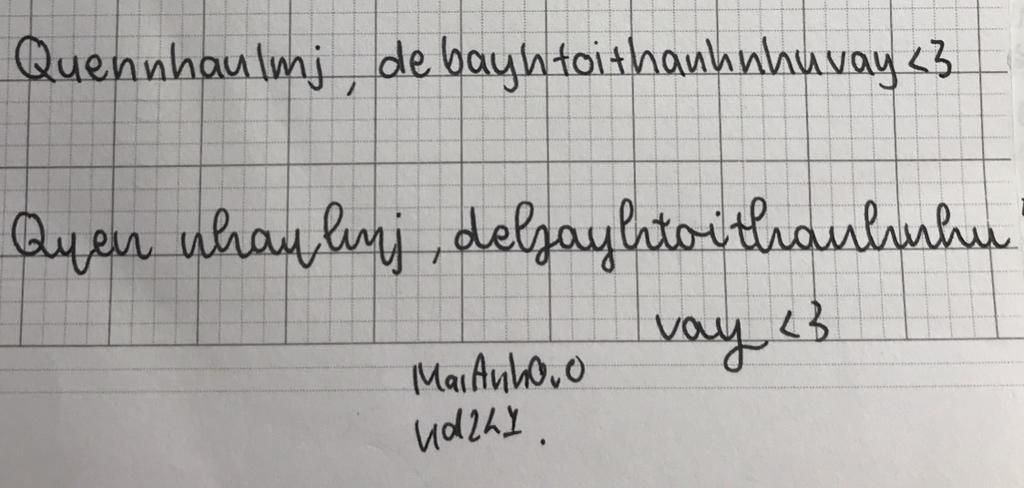 Quennhaulmj, de bayhtoithanhnhuvay <3
Quen nhaulmj, debayhtoithanhnhu
vay <3
MaiAnhO.O
nd2k1.